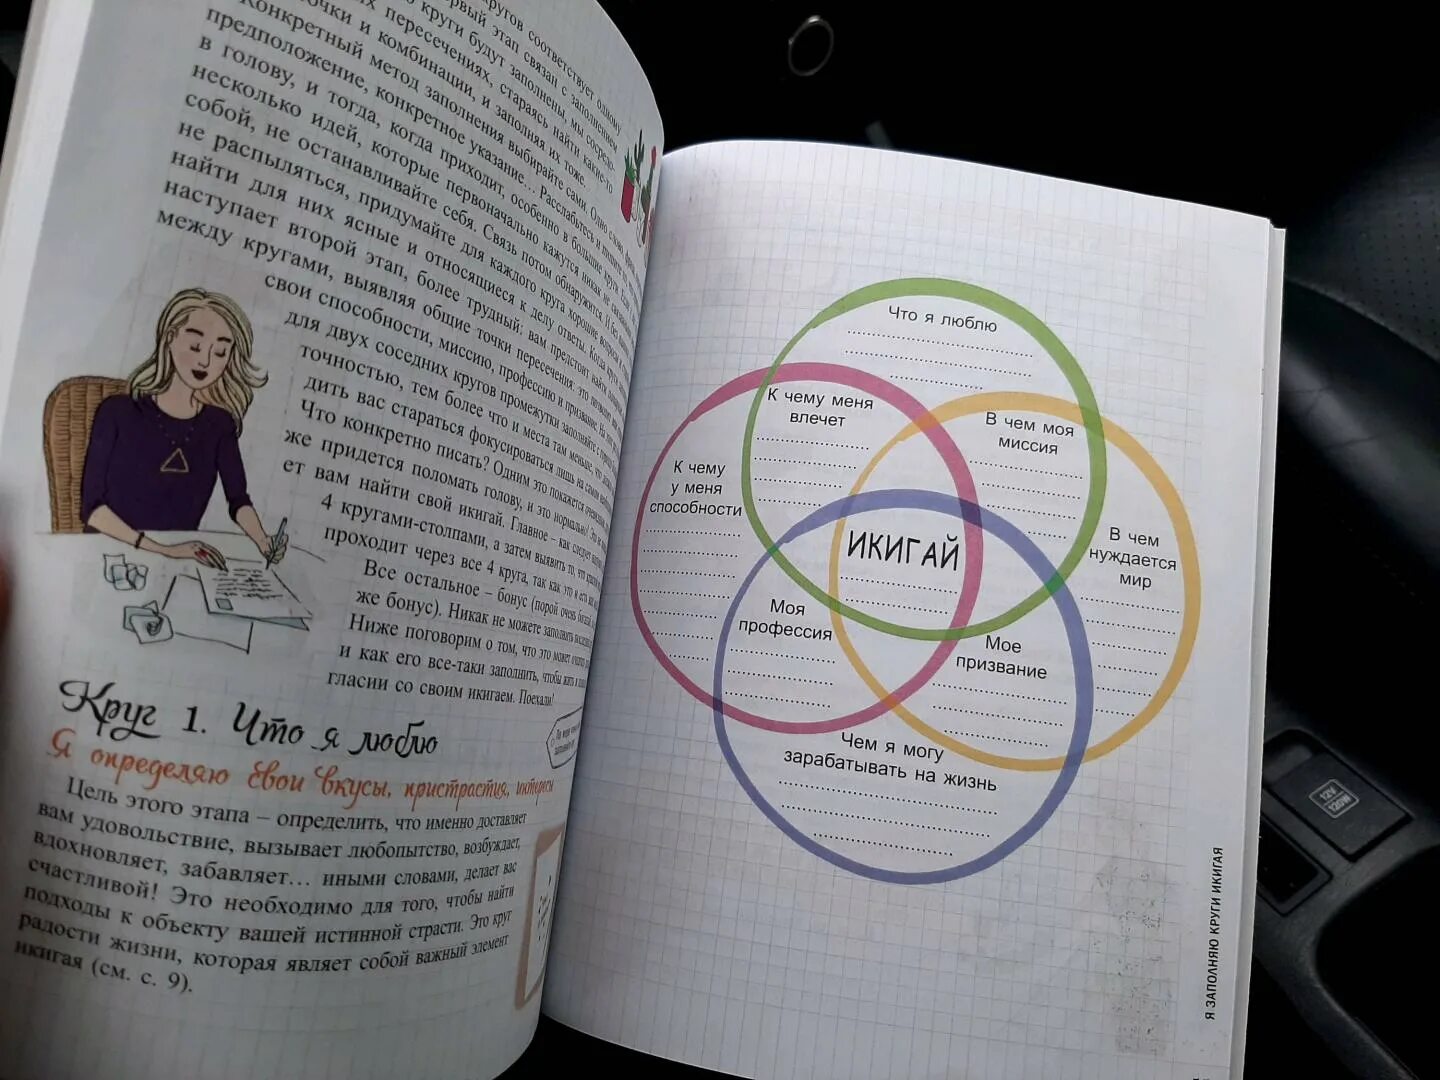 кругов соответствует одному
круги будут заполнены, мы сосредо-
пересечениях, стараясь найти какие-то
и комбинации, и заполняя их тоже.
Конкретный метод заполнения выбирайте сами. Одно слово,
предположение, конкретное указание... Расслабьтесь и пишите
в голову, и тогда, когда приходит, особенно в большие круги. Если
несколько идей, которые первоначально кажутся никак не
собой, не останавливайте себя. Связь потом обнаружится. И
не распыляться, придумайте для каждого круга хорошие вопросы
найти для них ясные и относящиеся к делу ответы. Когда круги
наступает второй этап, более трудный: вам предстоит найти
между кругами, выявляя общие точки пересечения: это позволит
свои способности, миссию, профессию и призвание.
для двух соседних кругов промежутки заполняйте с
точностью, тем более что и места там меньше, что
дить вас стараться фокусироваться лишь на самом
Что конкретно писать? Одним это покажется очевидным,
же придется поломать голову, и это нормально!
ет вам найти свой икигай. Главное – как следует
4 кругами-столпами, а затем выявить то, что
проходит через все 4 круга, так как это и есть
Все остальное – бонус (порой очень
же бонус). Никак не можете заполнить
Ниже поговорим о том, что это может
и как его все-таки заполнить, чтобы жить в
гласии со своим икигаем. Поехали!
Круг 1. Что я люблю
Я определяю свои вкусы, пристрастия, интересы
Цель этого этапа – определить, что именно доставляет
вам удовольствие, вызывает любопытство, возбуждает,
вдохновляет, забавляет... иными словами, делает вас
счастливой! Это необходимо для того, чтобы найти
подходы к объекту вашей истинной страсти. Это круг
радости жизни, которая являет собой важный элемент
икигая (см. с. 9).
Что я люблю
К чему меня
влечет
В чем моя
миссия
К чему
у меня
способности
В чем
нуждается
мир
ИКИГАЙ
Моя
профессия
Мое
призвание
Чем я могу
зарабатывать на жизнь
Я ЗАПОЛНЯЮ КРУГИ ИКИГАЯ
12V
120W